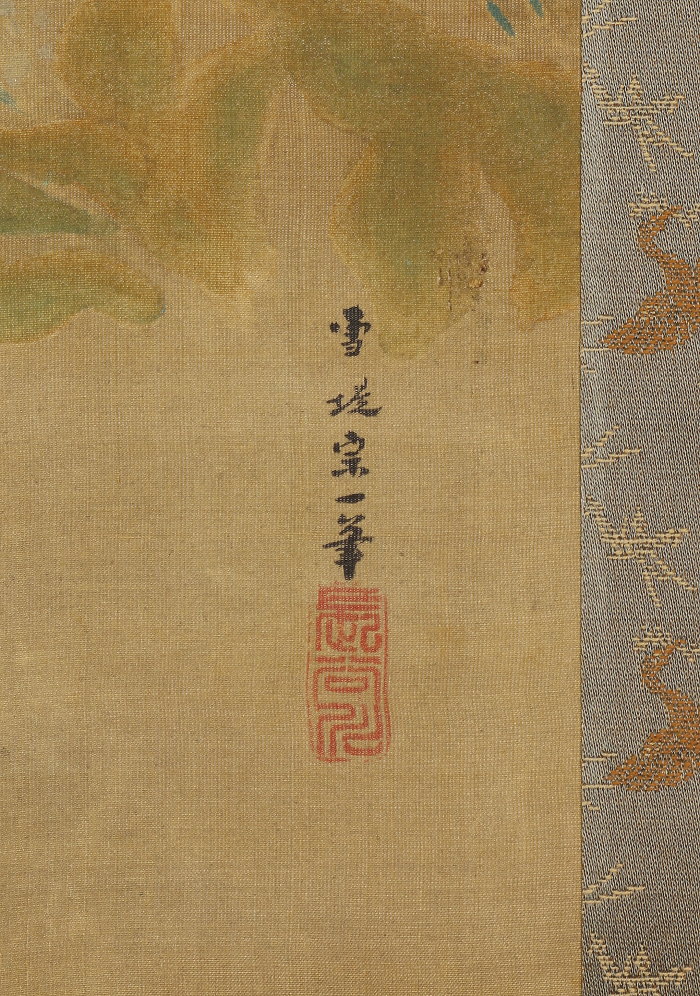 雪堤宗一筆